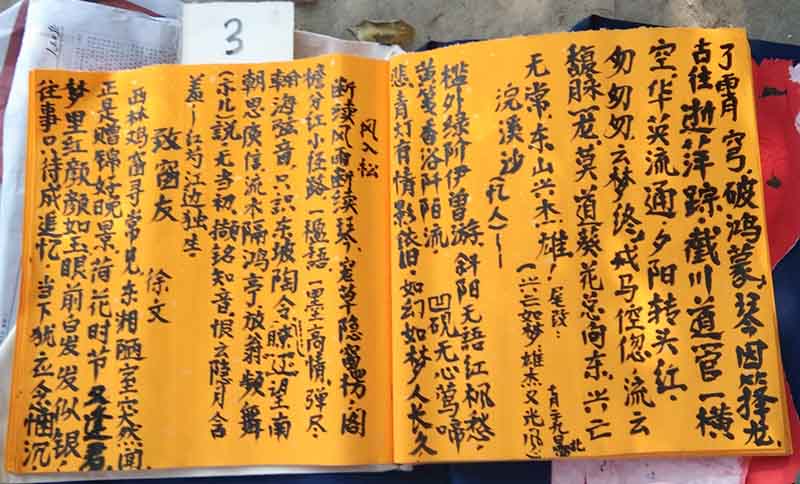 3
了霄穹.破鸿蒙.琴因箨龙.
古往逝萍踪.截川道官一横
空.华英流通.夕阳转头红.
匆匆匆.云梦终.戎马倥偬.流云
馥脉一龙.莫道葵花总向东.兴亡
无常.东山兴木一雄!尾改:
(兴亡如梦.雄杰又光风)
浣溪沙(忆人)~
槛外绿阶伊曾游.斜阳无语红枫愁.
黄笺香浴阡陌流 凹砚无心莺啼
悲青灯有情影依旧.如幻如梦人长久
风入松
断续风雨断续琴.岩草隐窗枋.阁
檐分红小径路.一楹语.一墨高情.弹尽.
翰海弦音.只识东坡陶令.还望南
朝思庾信.流水隔鸿亭.放翁频舞
(示儿)说.无当初.撷铭知音.恨云隐月含
羞~红为江边独生~
致窗友
徐文
西林鸡窗寻常见.东湘陋室突然闻.
正是赠锦好晚景.荷花时节又逢君.
梦里红颜颜如玉.眼前白发发似银.
往事只待成追忆.当下犹应念悃沉.